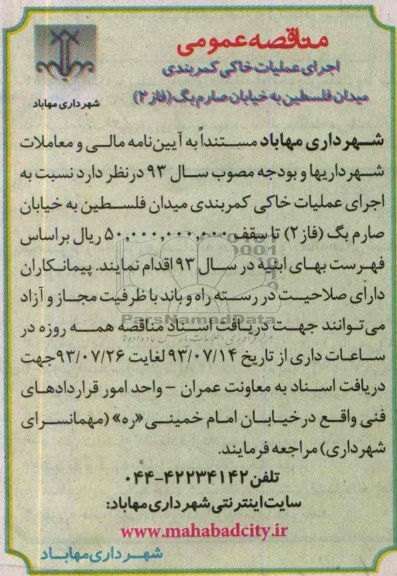 مناقصه عمومی
اجرای عملیات خاکی کمربندی
میدان فلسطین به خیابان صارم بگ (فاز ۲)
شهرداری مهاباد
شهرداری مهاباد مستنداً به آیین‌نامه مالی و معاملات
شهرداریها و بودجه مصوب سال ۹۳ درنظر دارد نسبت به
اجرای عملیات خاکی کمربندی میدان فلسطین به خیابان
صارم بگ (فاز ۲) تا سقف ۵۰,۰۰۰,۰۰۰,۰۰۰ ریال براساس
فهرست بهای ابنیه در سال ۹۳ اقدام نمایند. پیمانکاران
دارای صلاحیت در رسته راه و باند با ظرفیت مجاز و آزاد
می‌توانند جهت دریافت اسناد مناقصه همه روزه در
ساعات داری از تاریخ ۹۳/۰۷/۱۴ لغایت ۹۳/۰۷/۲۶ جهت
دریافت اسناد به معاونت عمران – واحد امور قراردادهای
فنی واقع درخیابان امام خمینی «ره» (مهمانسرای
شهرداری) مراجعه فرمایند.
تلفن ۴۲۲۳۴۱۴۲-۰۴۴
سایت اینترنتی شهرداری مهاباد:
www.mahabadcity.ir
شهرداری مهاباد
ParsNamadData